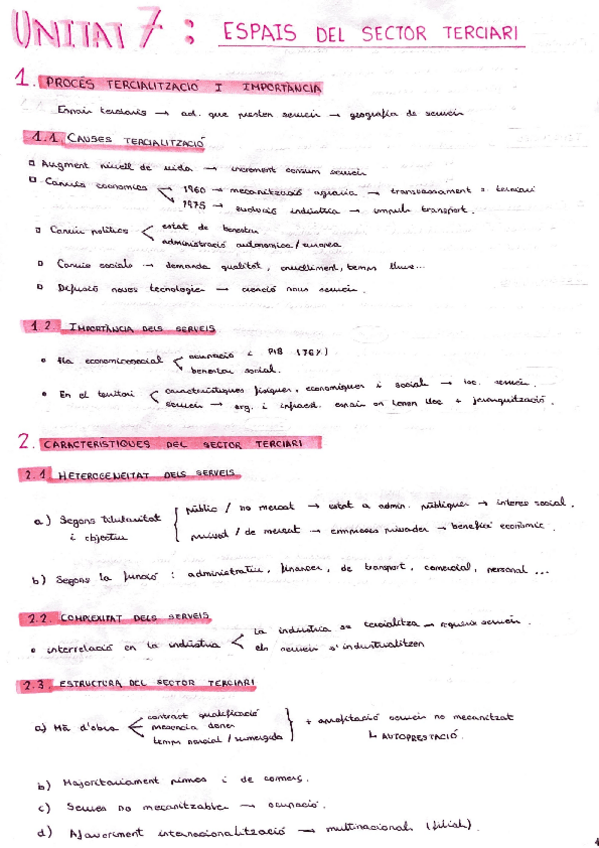 UNITAT 7 : ESPAIS DEL SECTOR TERCIARI
1. PROCÉS TERCIALITZACIÓ I IMPORTÀNCIA
Espais terciaris → act. que presten serveis → geografia de serveis
1.1 CAUSES TERCIALITZACIÓ
Augment nivell de vida → increment consum serveis
Canvis econòmics → 1960 → mecanització agrària → transvasament a terciari
→ 1975 → evolució indústria → impuls transport.
Canvis polítics < estat de benestar
administració autonòmica / europea
Canvis socials → demanda qualitat, envelliment, temps lliure...
Difusió noves tecnologies → creació nous serveis.
1.2. IMPORTÀNCIA DELS SERVEIS
• Ha economicosocial < ocupació i PIB (76%)
benestar social.
• En el territori < característiques físiques, econòmiques i socials → loc. serveis.
serveis → org. i infraest. espais on tenen lloc + jerarquització.
2. CARACTERISTIQUES DEL SECTOR TERCIARI
2.1 HETEROGENEITAT DELS SERVEIS
a) Segons titularitat i objectiu { públic / no mercat → estat a admin. públiques → interes social.
privat / de mercat → empreses privades → benefici econòmic.
b) Segons la funció : administratiu, financer, de transport, comercial, personal ...
2.2. COMPLEXITAT DELS SERVEIS
• interrelació en la indústria < La indústria se terciatitza → requerix serveis.
els serveis s'industrialitzen
2.3. ESTRUCTURA DEL SECTOR TERCIARI
a) Mà d'obra < contract qualificació
presencia dones
temps parcial / sumergida } + aprofitació serveis no mecanitzat
↳ AUTOPRESTACIÓ.
b) Majoritariament pimes i de comerç.
c) Serveis no mecanitzables → ocupació.
d) Afavoriment internacionalització → multinacionals (filials).
1